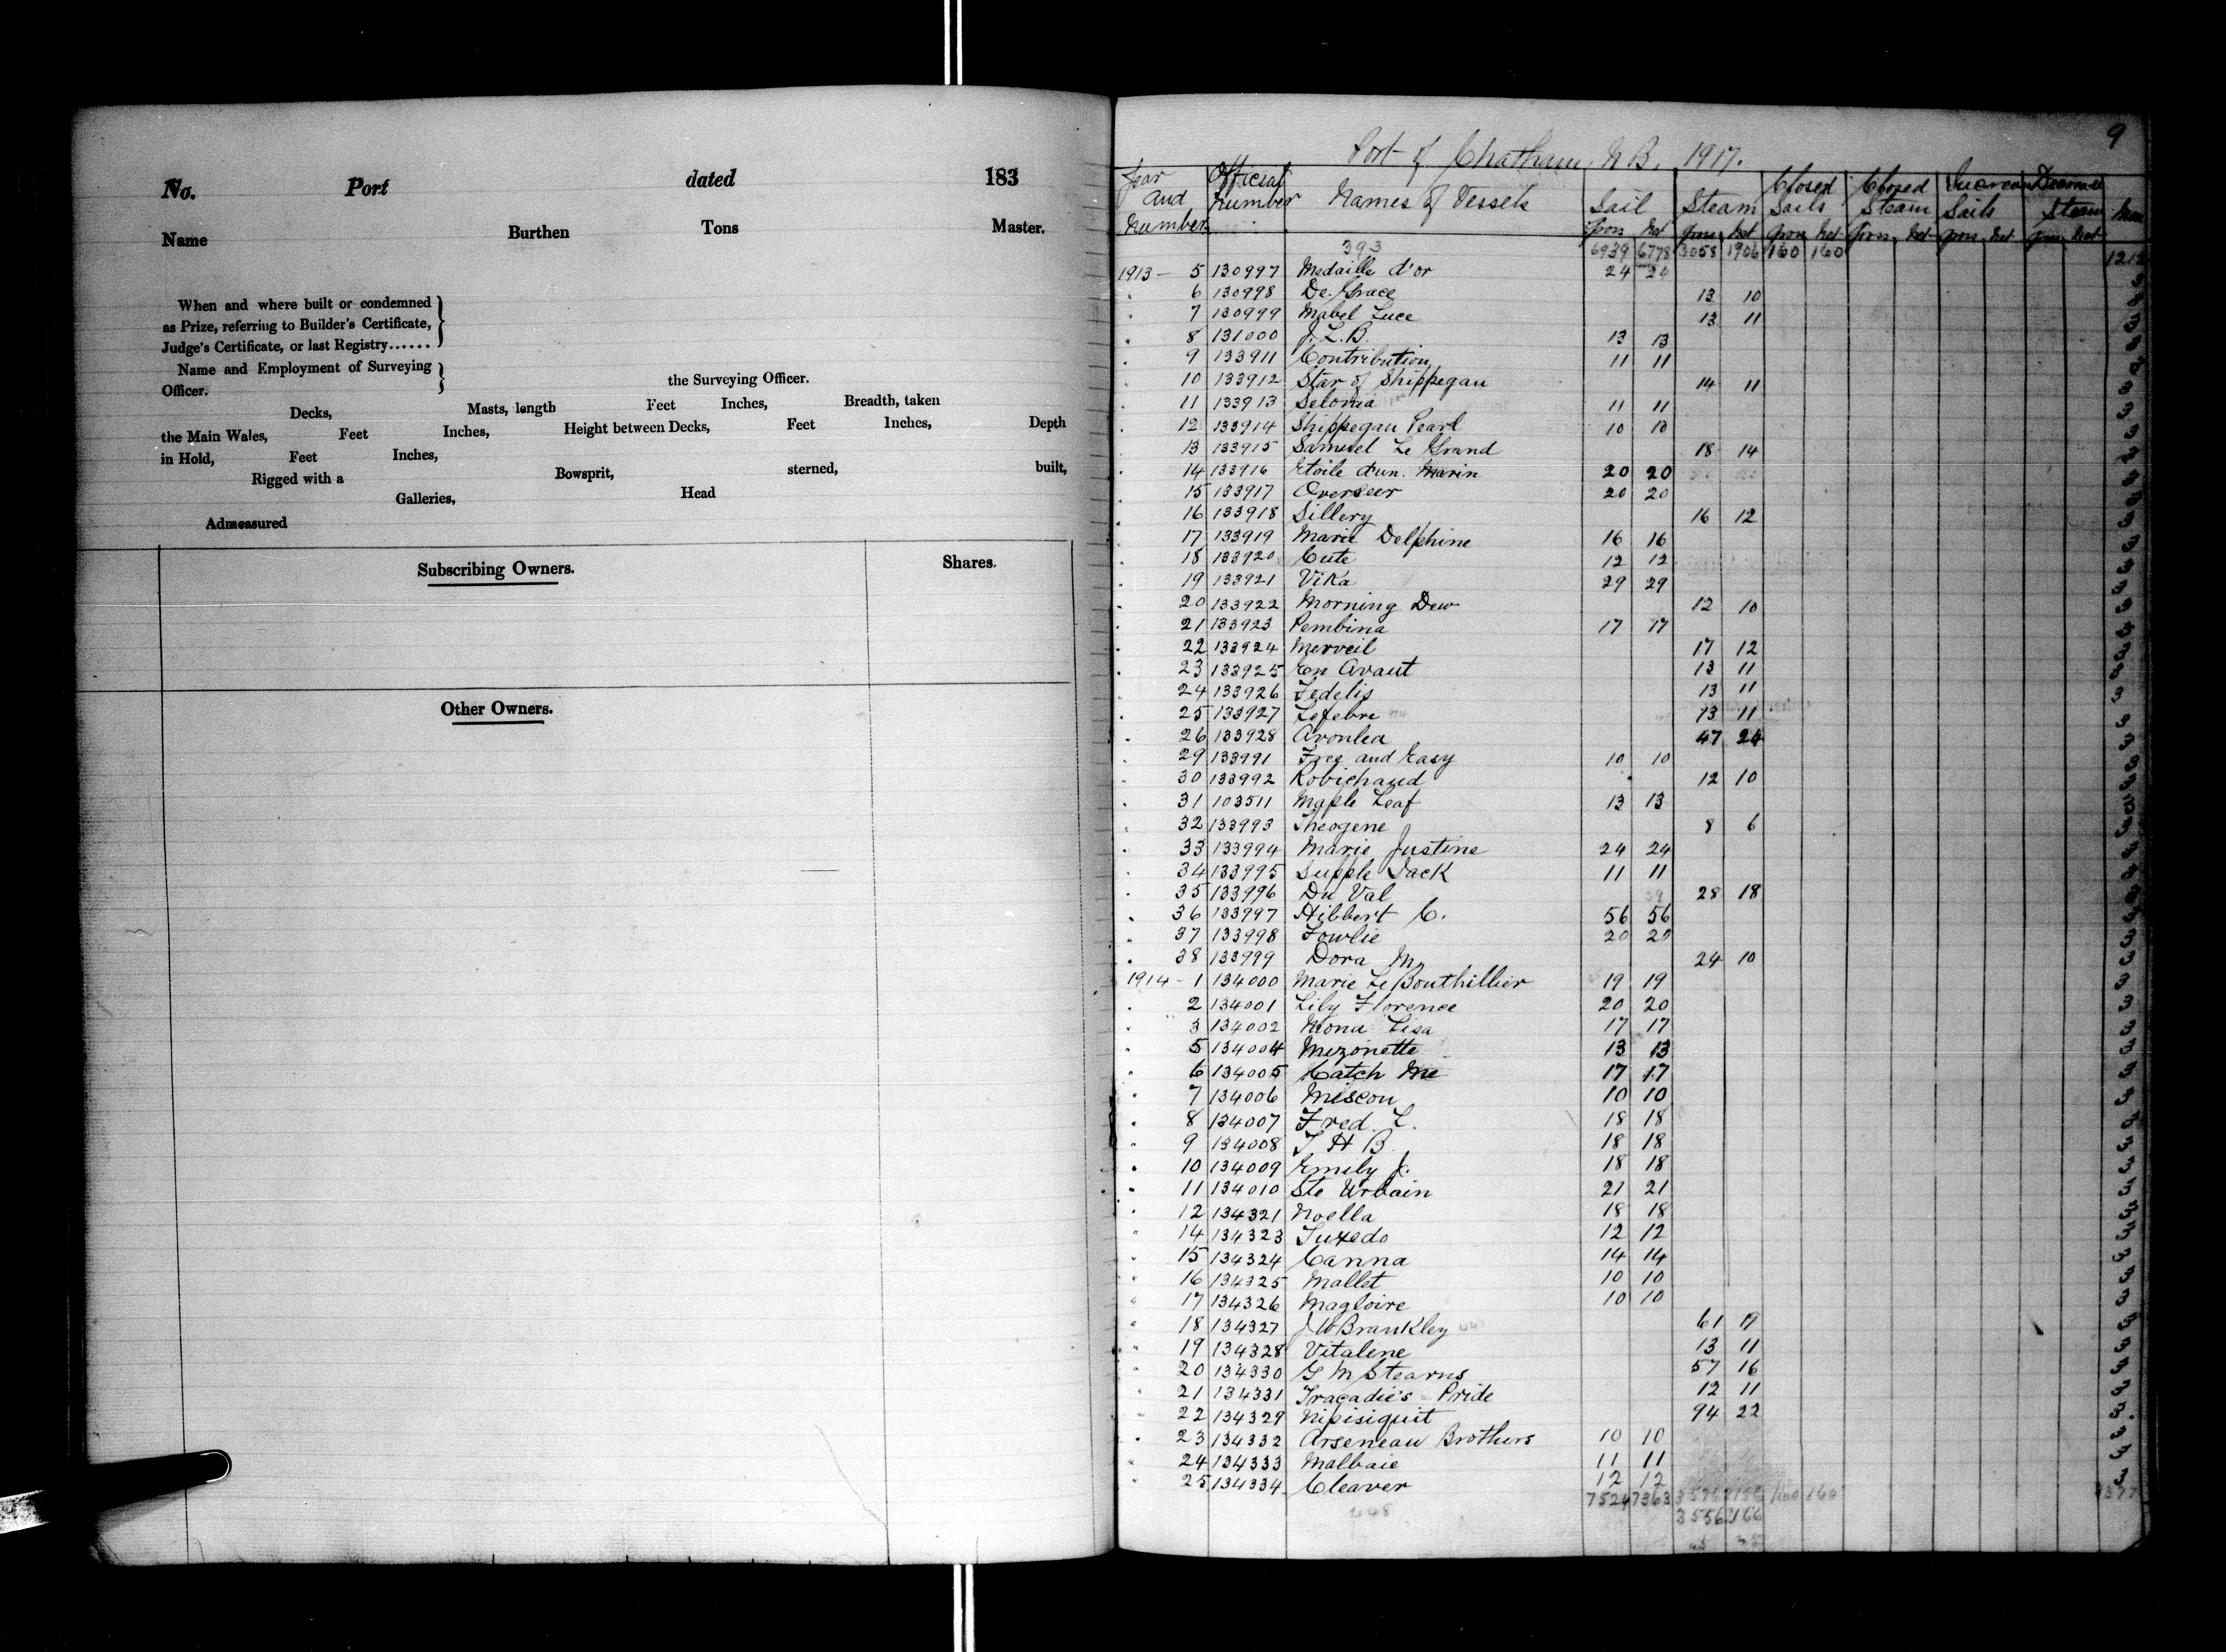 No. Port dated 183
Name Burthen Tons Master.
When and where built or condemned
as Prize, referring to Builder's Certificate,
Judge's Certificate, or last Registry......
Name and Employment of Surveying
Officer. the Surveying Officer.
Decks, Masts, length Feet Inches, Breadth, taken
the Main Wales, Feet Inches, Height between Decks, Feet Inches, Depth
in Hold, Feet Inches,
Rigged with a Bowsprit, sterned, built,
Galleries, Head
Admeasured
Subscribing Owners. Shares.
Other Owners.
9
Port of Chatham. N.B. 1917.
Year and Number Official Number Names of Vessels Sail Steam Closed Sails Closed Steam Increase Sails Decrease Steam Men
Gross Net Gross Net Gross Net Gross Net Gross Net Gross Net
393 6939 6778 3058 1906 160 160 1212
1913 - 5 130997 Medaille d'or 24 24 3
" 6 130998 De Grace 13 10 3
" 7 130999 Mabel Luce 13 11 3
" 8 131000 J. L. B. 13 13 3
" 9 133911 Contribution 11 11
" 10 133912 Star of Shippegan 14 11 3
" 11 133913 Selonia 11 11 3
" 12 133914 Shippegan Pearl 10 10 3
" 13 133915 Samuel Le Grand 18 14 3
" 14 133916 Etoile d'un Marin 20 20 3
" 15 133917 Overseer 20 20 3
" 16 133918 Sillery 16 12 3
" 17 133919 Marie Delphine 16 16 3
" 18 133920 Cute 12 12 3
" 19 133921 Vika 29 29 3
" 20 133922 Morning Dew 12 10 3
" 21 133923 Pembina 17 17
" 22 133924 Merveil 17 12 3
" 23 133925 En Avant 13 11 3
" 24 133926 Fedelis 13 11 3
" 25 133927 Lefebre 13 11 3
" 26 133928 Avonlea 47 24 3
" 29 133991 Free and Easy 10 10 3
" 30 133992 Robichaud 12 10 3
" 31 103511 Maple Leaf 13 13 3
" 32 133993 Theogene 8 6 3
" 33 133994 Marie Justine 24 24 3
" 34 133995 Supple Jack 11 11 3
" 35 133996 Du Val 28 18 3
" 36 133997 Hibbert C. 56 56
" 37 133998 Fowlie 20 20 3
" 38 133999 Dora M. 24 10 3
1914 - 1 134000 Marie Le Bouthillier 19 19 3
" 2 134001 Lily Florence 20 20 3
" 3 134002 Mona Lisa 17 17 3
" 5 134004 Mizonette 13 13 3
" 6 134005 Catch Me 17 17 3
" 7 134006 Miscou 10 10 3
" 8 134007 Fred. L. 18 18 3
" 9 134008 T H B 18 18 3
" 10 134009 Emily J. 18 18 3
" 11 134010 Ste Urbain 21 21 3
" 12 134321 Noella 18 18 3
" 14 134323 Tuxedo 12 12 3
" 15 134324 Canna 14 14 3
" 16 134325 Mallet 10 10 3
" 17 134326 Magloire 10 10 3
" 18 134327 J W Brankley 61 19 3
" 19 134328 Vitaline 13 11 3
" 20 134330 G M Stearns 57 16 3
" 21 134331 Tracadie's Pride 12 11 3
" 22 134329 Nipisiguit 94 22 3
" 23 134332 Arseneau Brothers 10 10 3
" 24 134333 Malbaie 11 11 3
" 25 134334 Cleaver 12 12 3
448 7524 7363 160 160
3556 2166